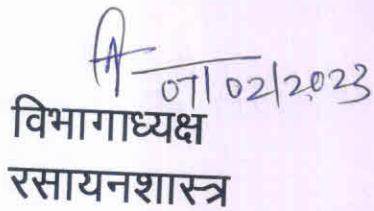 07/02/2023
विभागाध्यक्ष
रसायनशास्त्र